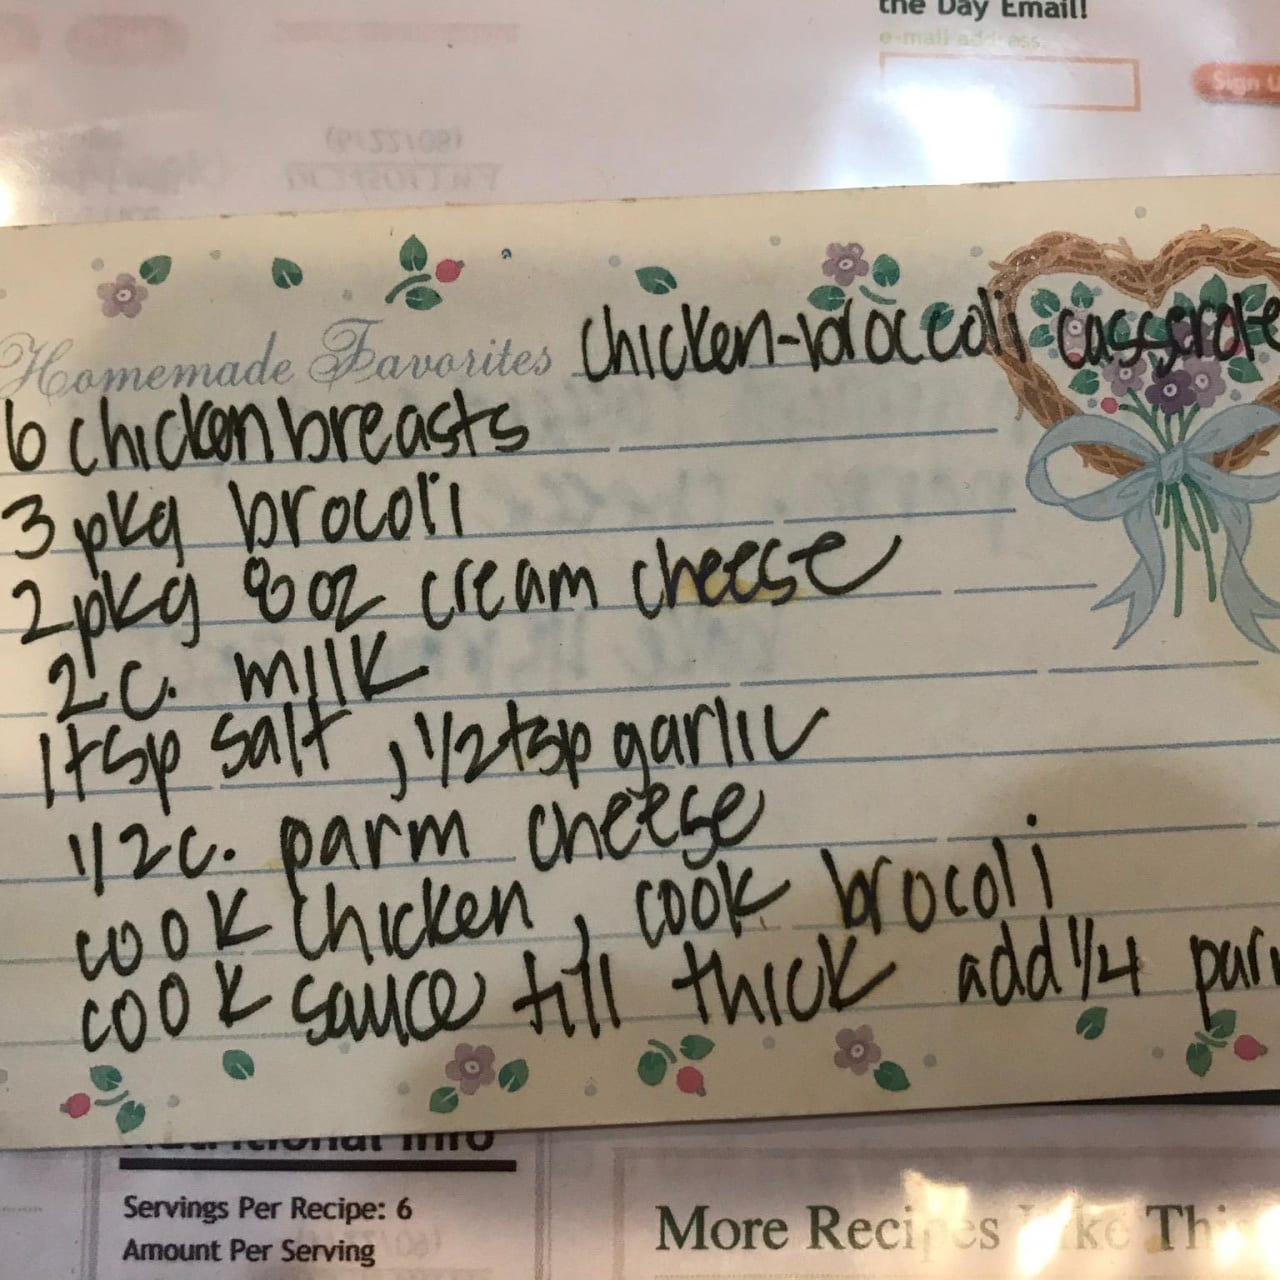 the Day Email!
e-mail address
Sign U
Homemade Favorites chicken-broccoli casserole
6 chicken breasts
3 pkg brocoli
2 pkg 8 oz cream cheese
2 c. milk
1 tsp salt, 1/2 tsp garlic
1/2 c. parm cheese
cook chicken, cook brocoli
cook sauce till thick add 1/4 parm
Nutritional Info
Servings Per Recipe: 6
Amount Per Serving
More Recipes Like This